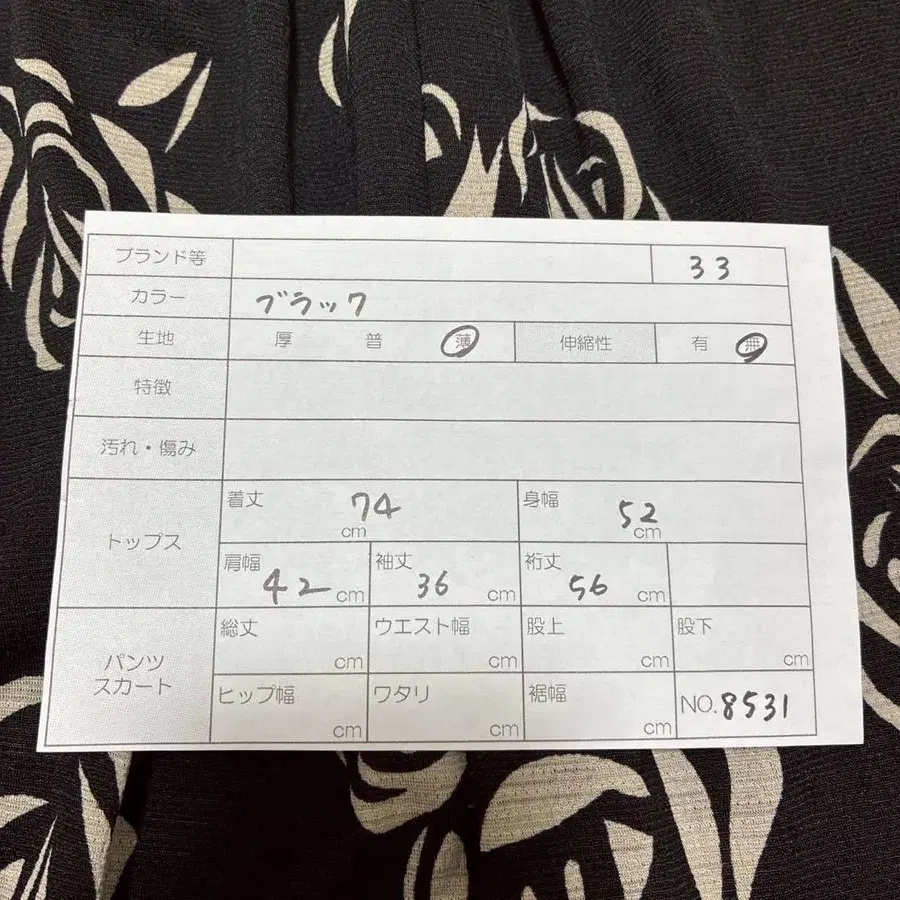 ブランド等 33
カラー ブラック
生地 厚 普 薄 伸縮性 有 無
特徴
汚れ・傷み
トップス
着丈 74 cm 身幅 52 cm
肩幅 42 cm 袖丈 36 cm 裄丈 56 cm
パンツ
スカート
総丈 cm ウエスト幅 cm 股上 cm 股下 cm
ヒップ幅 cm ワタリ cm 裾幅 cm NO.8531